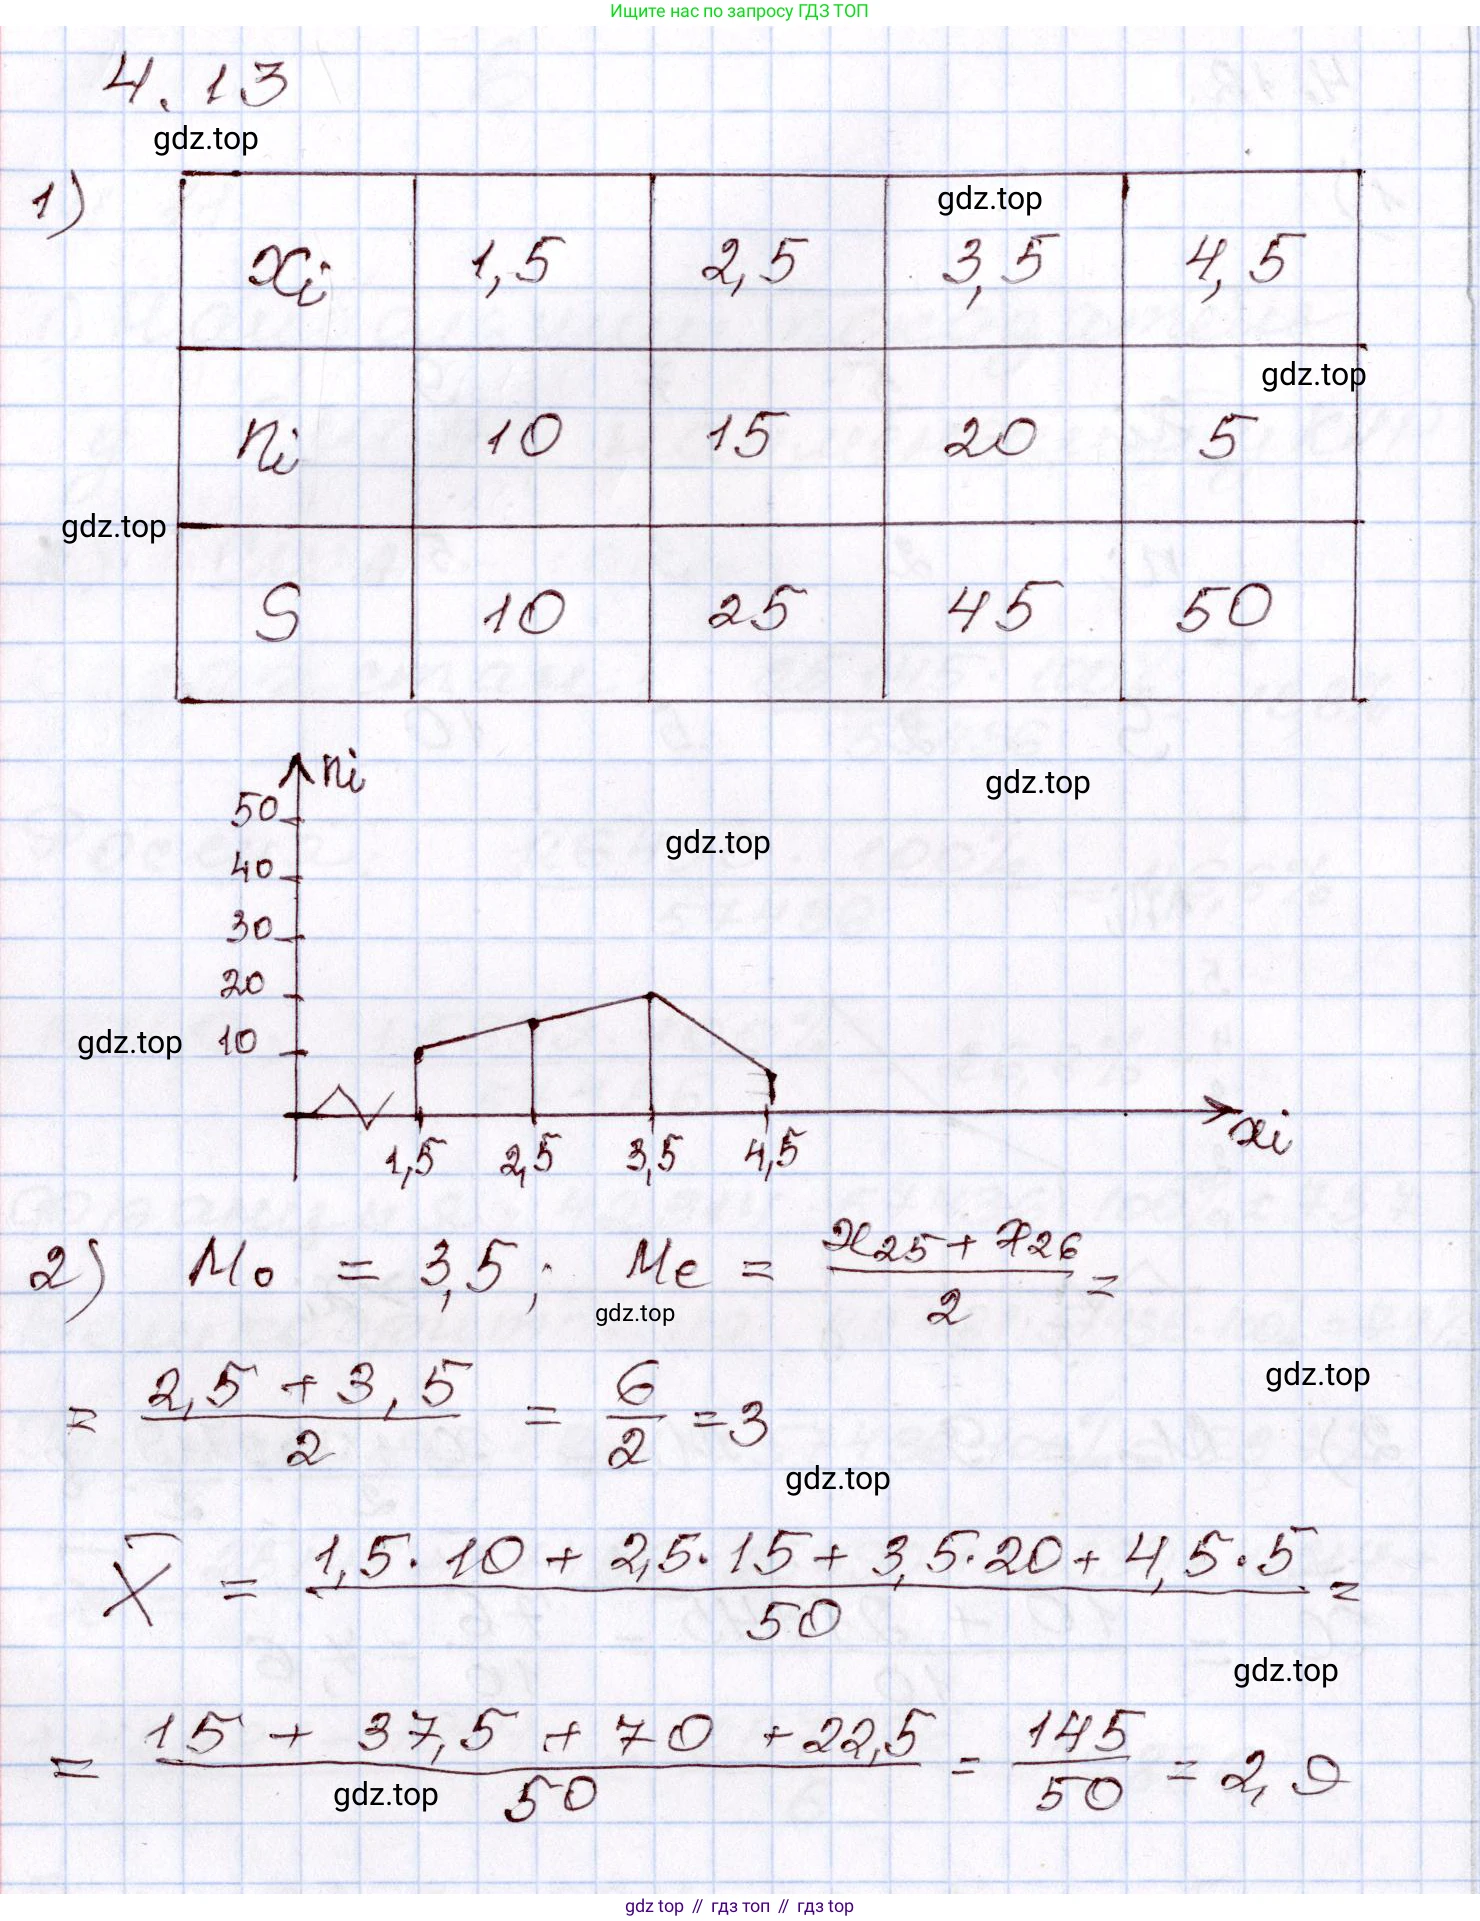 Ищите нас по запросу ГДЗ ТОП
4.13
gdz.top
1)
gdz.top
xi 1,5 2,5 3,5 4,5
gdz.top
ni 10 15 20 5
gdz.top
S 10 25 45 50
ni
gdz.top
50
gdz.top
40
30
20
gdz.top
10
xi
1,5 2,5 3,5 4,5
2) Mo = 3,5; Me = (x25 + x26)/2 =
gdz.top
gdz.top
= (2,5 + 3,5)/2 = 6/2 = 3
gdz.top
X̅ = (1,5·10 + 2,5·15 + 3,5·20 + 4,5·5)/50 =
gdz.top
= (15 + 37,5 + 70 + 22,5)/50 = 145/50 = 2,9
gdz.top
gdz top // гдз топ // гдз top